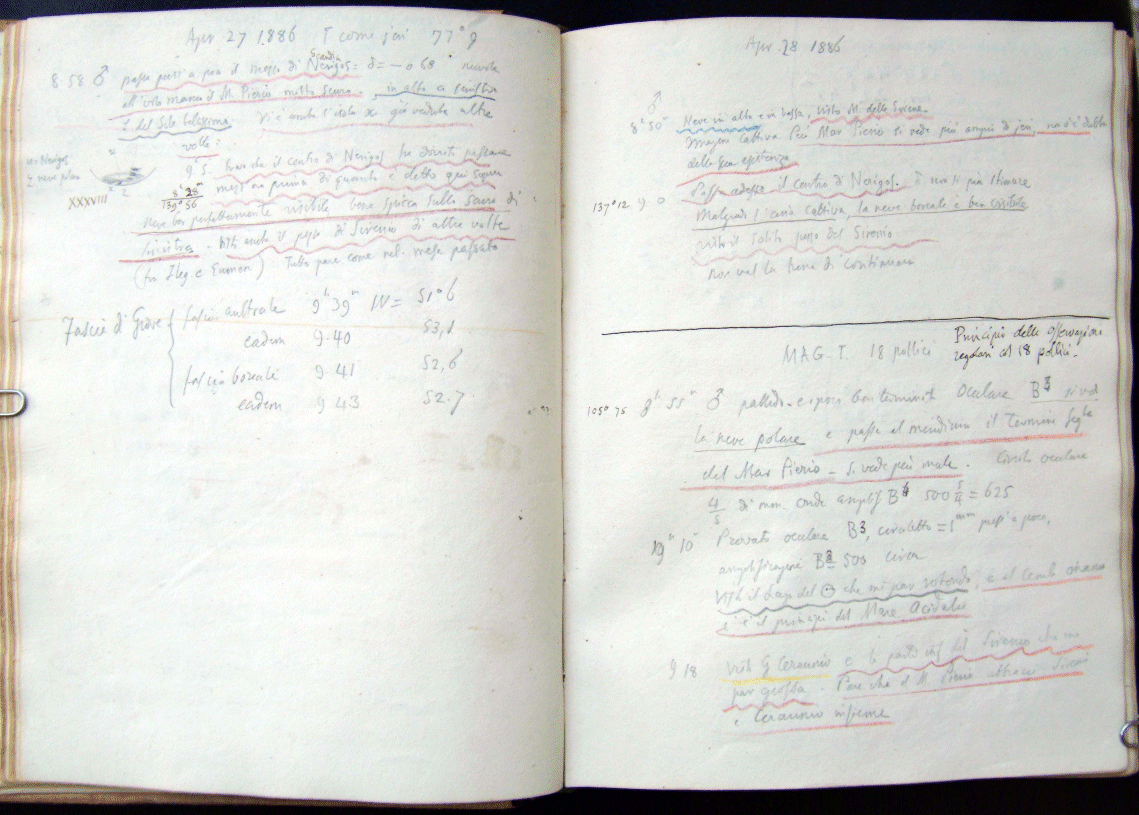 Apr 27 1886 T come jeri 77° 9
8 58 ♂ passa poco a poco il mezzo di Nerigos = δ = − 0 68 nuvole
Scandia
all'orlo manca di M. Pierio molto scuro. in alto a sinistra
è del Solo
Vi è anche l'isola x già veduta altre
volte:
9 5. trovo che il centro di Nerigos ha dovuto passare
= Nerigos
neve polare
8h 28m
139° 56
XXXVIII
mezz'ora prima di quanto è detto qui sopra
Neve bor perfettamente visibile, bene spicca sullo scuro di
sinistra. Visto anche il pezzo di Sirenio di altre volte
(tra Fleg. e Eunon.) Tutto pare come nel mese passato
Fascie di Giove { fascia australe 9h 39m IV = 51° 6
eadem 9.40 53,1
fascia boreale 9.41 52,6
eadem 9.43 52.7
Apr. 28 1886
♂
8h 50m Neve in alto e in basso, visto M. delle Sirene.
Imagine cattiva. Poi Mar Pierio si vede più ampio di jeri, non c'è dubbio
della sua esistenza
137° 12 9. 0 Passa adesso il centro di Nerigos. δ non si può stimare
Malgrado l'aria cattiva, la neve boreale è ben visibile
visto il solito pezzo del Sirenio
non val la pena di continuare
Principio delle osservazioni
regolari col 18 pollici.
MAG. T. 18 pollici
105° 75 8h 55m ♂ pallido - e poco ben terminato Oculare B3 si vede
la neve polare e passa al meridiano il termine
del Mar Pierio - si vede più male. Circolo oculare
4/5 di mm. onde amplif B4 500 5/4 = 625
19h 10m Provato oculare B3, circoletto = 1mm presso a poco,
amplificazione B3 = 500 circa
Visto il Lago del ☉ che mi par rotondo, e al lembo
c'è il principio del Mare Acidalio
9 18 Visto G Ceraunio e la parte inf del Sirenio che mi
par grossa. Pare che il M. Pierio abbracci Sirenio
e Ceraunio insieme